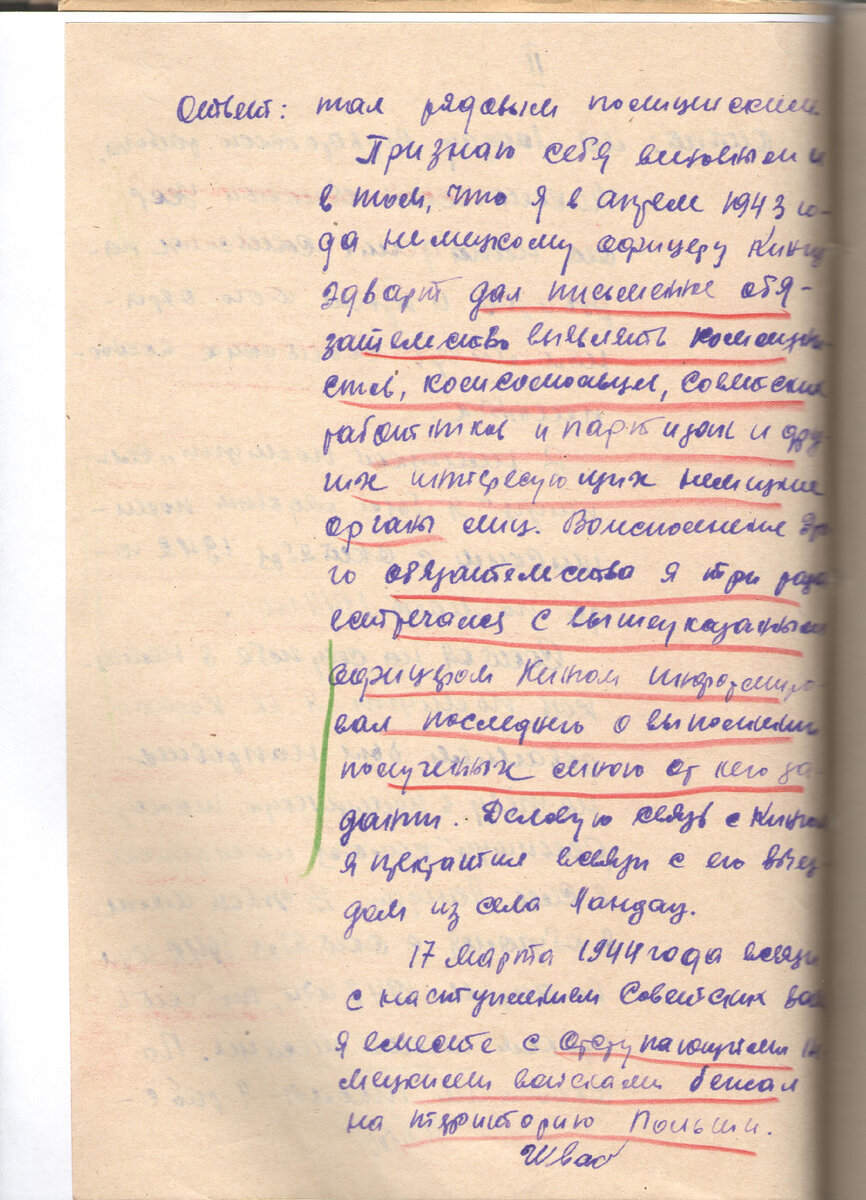 Ответ: тал рядовым полицейским.
Признаю себя виновным и
в том, что я в апреле 1943 го-
да немецкому офицеру Кинц
Эдварт дал письменне обя-
зательство выявлять коммуни-
стов, комсомольцев, советских
работников и партизан и дру-
гих интересующих немецкие
органы лиц. Воисполнение это-
го обязательства я три раза
встречался с вышеуказанным
офицером Кинцом информиро-
вал последнего о выполнении
полученных мною от него за-
дании. Деловую связь с Кинцом
я прекратил всвязи с его выез-
дом из села Ландау.
17 марта 1944 года всвязи
с наступлением Советских войск
я вместе с отступающими не-
мецкими войсками бежал
на территорию Польши.
Шваб